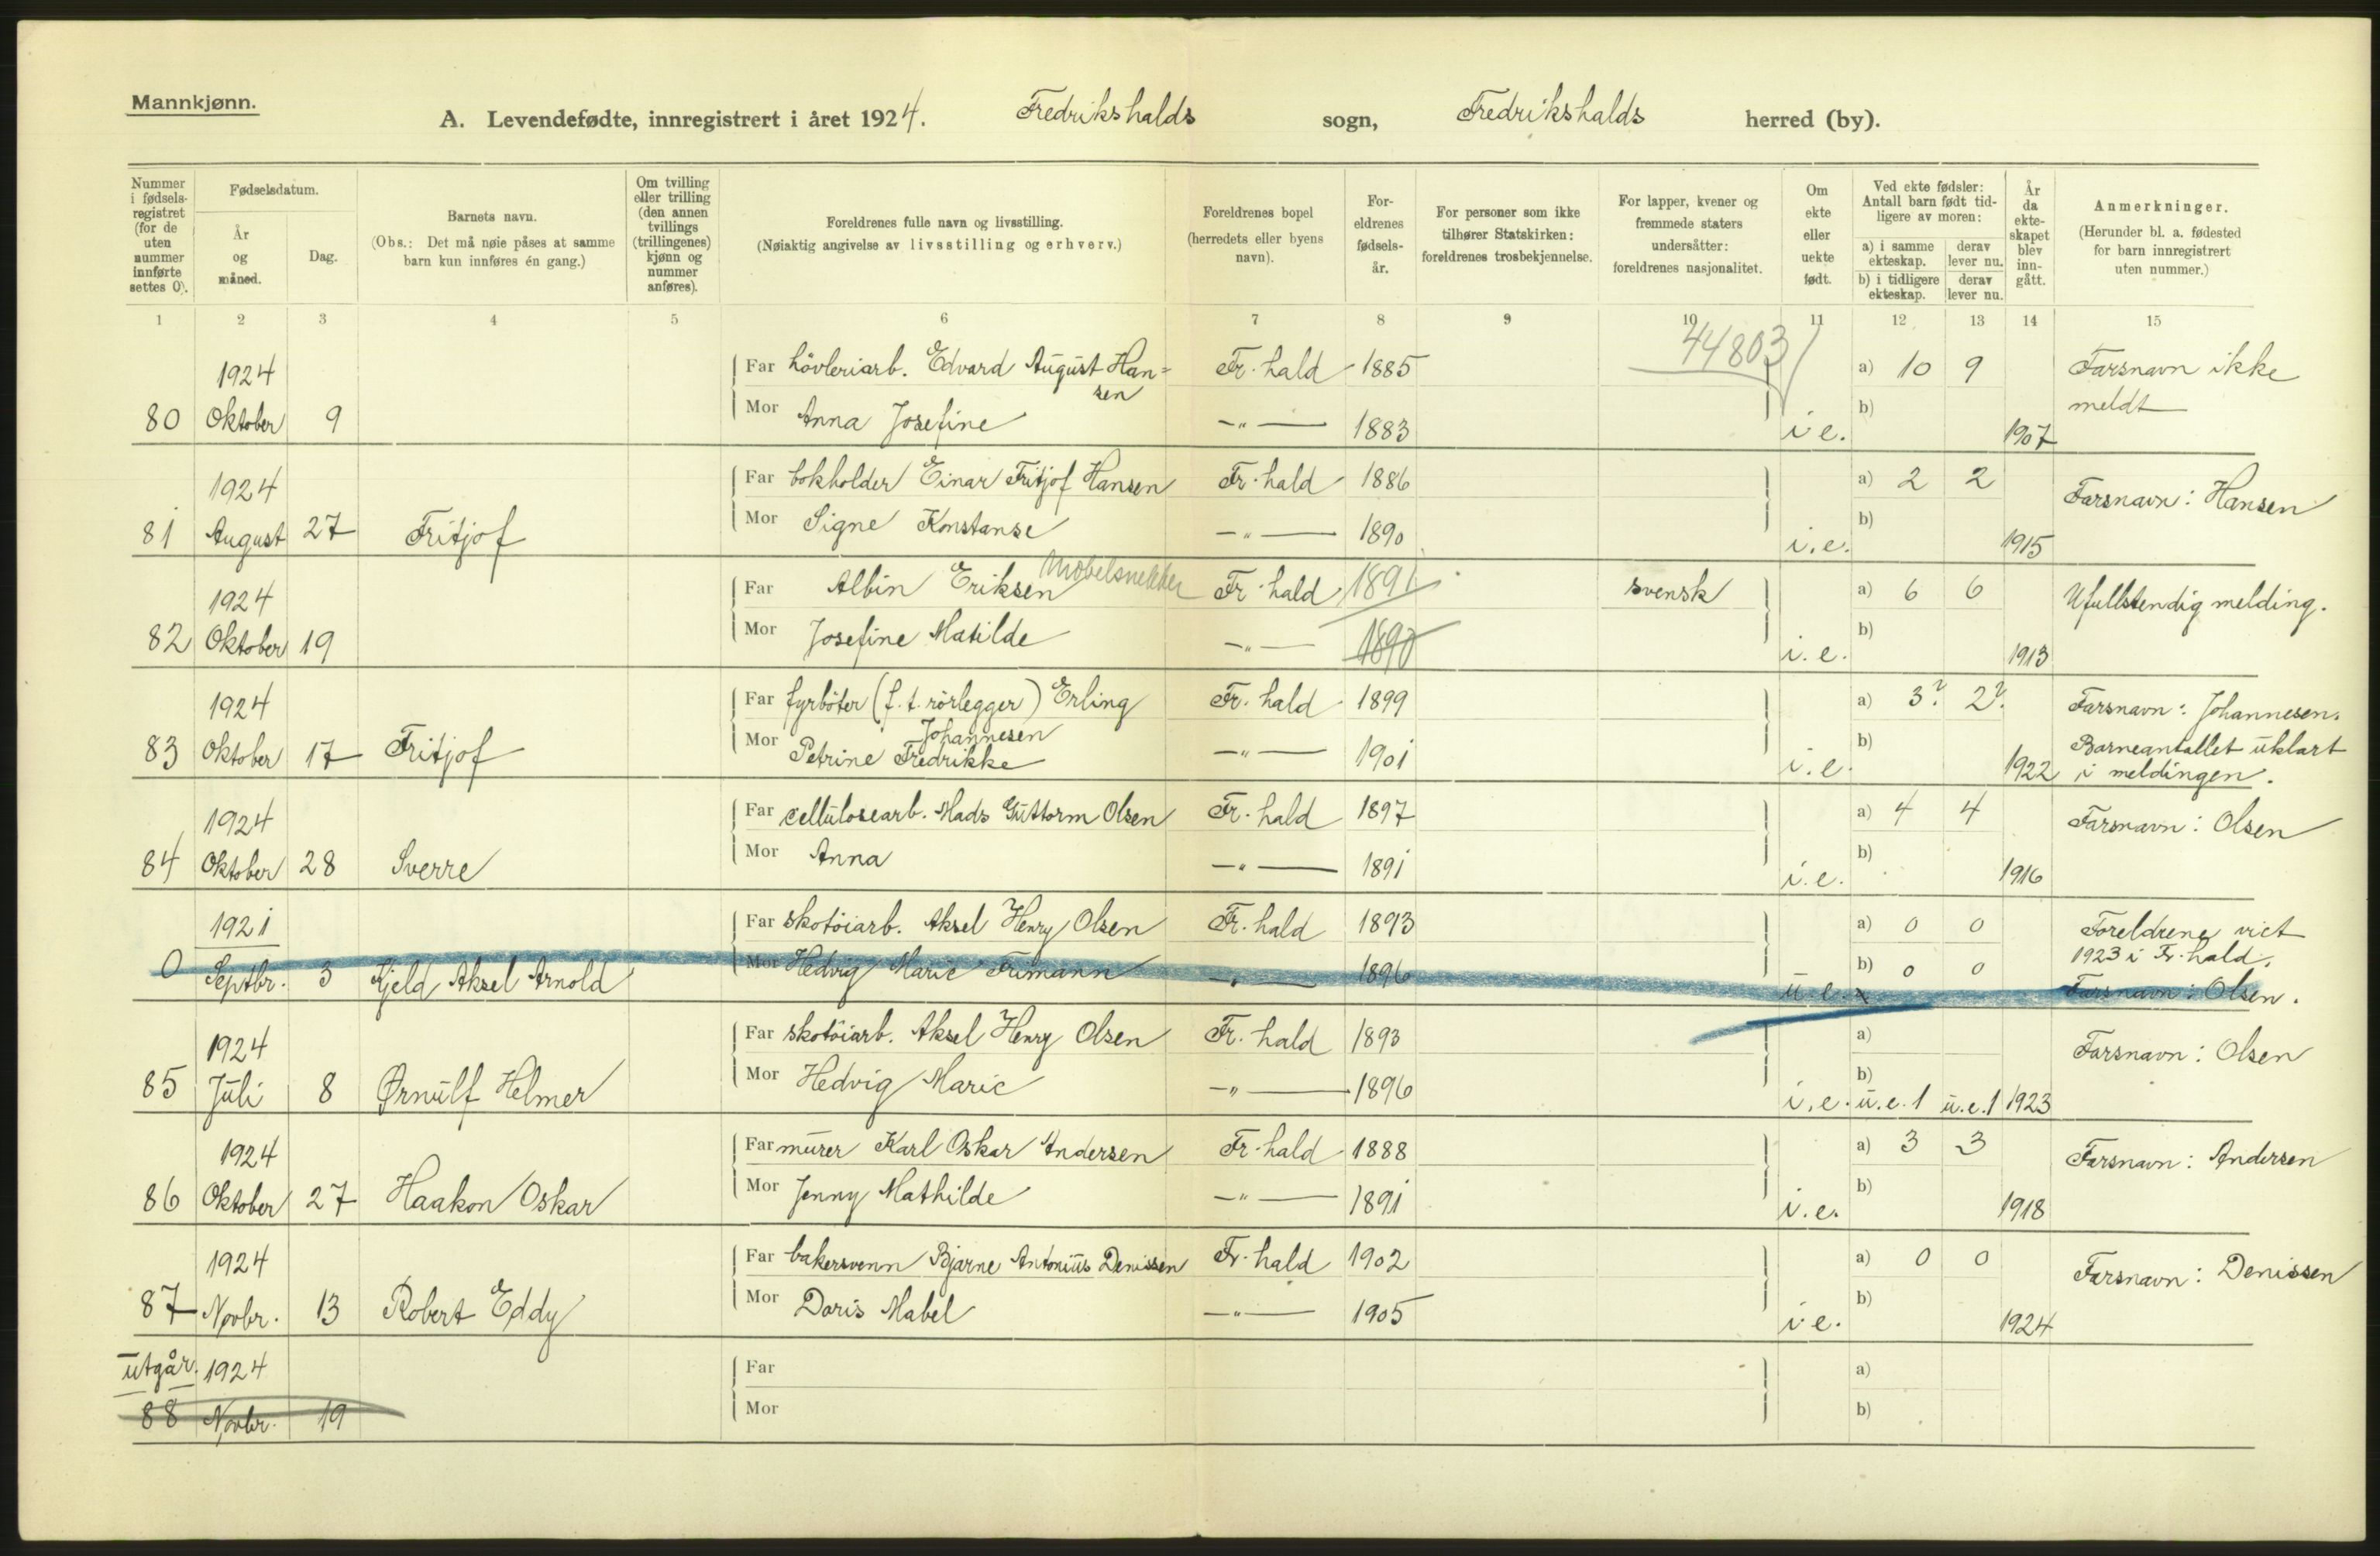 Mannkjønn.
A. Levendefødte, innregistrert i året 1924. Fredrikshalds sogn, Fredrikshalds herred (by).
Nummer i fødselsregistret (for de uten nummer innførte settes 0).
Fødselsdatum.
År og måned.
Dag.
Barnets navn.
(Obs.: Det må nøie påses at samme barn kun innføres én gang.)
Om tvilling eller trilling (den annen tvillings (trillingenes) kjønn og nummer anføres).
Foreldrenes fulle navn og livsstilling.
(Nøiaktig angivelse av livsstilling og erhverv.)
Foreldrenes bopel (herredets eller byens navn).
Foreldrenes fødselsår.
For personer som ikke tilhører Statskirken: foreldrenes trosbekjennelse.
For lapper, kvener og fremmede staters undersåtter: foreldrenes nasjonalitet.
Om ekte eller uekte født.
Ved ekte fødsler: Antall barn født tidligere av moren:
a) i samme ekteskap.
derav lever nu.
b) i tidligere ekteskap.
derav lever nu.
År da ekteskapet blev inngått.
Anmerkninger.
(Herunder bl. a. fødested for barn innregistrert uten nummer.)
1 2 3 4 5 6 7 8 9 10 11 12 13 14 15
44803
1924 Far hövleriarb. Edvard August Hansen Fr.hald 1885 a) 10 9 Farsnavn ikke meldt
80 Oktober 9 Mor Anna Josefine —"— 1883 i e. b) 1907
1924 Far bokholder Einar Fritjof Hansen Fr.hald 1886 a) 2 2 Farsnavn: Hansen
81 August 27 Fritjof Mor Signe Konstanse —"— 1890 i.e. b) 1915
1924 Far Albin Eriksen Möbelsnekker Fr.hald 1891 svensk a) 6 6 Ufullstendig melding.
82 Oktober 19 Mor Josefine Matilde —"— 1890 i.e. b) 1913
1924 Far fyrböter (f.t. rörlegger) Erling Johannesen Fr.hald 1899 a) 3? 2? Farsnavn: Johannesen.
83 Oktober 17 Fritjof Mor Petrine Fredrikke —"— 1901 i.e. b) 1922 Barneantallet uklart i meldingen.
1924 Far cellulosearb. Mads Guttorm Olsen Fr.hald 1897 a) 4 4 Farsnavn: Olsen
84 Oktober 28 Sverre Mor Anna —"— 1891 i.e. b) 1916
1921 Far skotöiarb. Aksel Henry Olsen Fr.hald 1893 a) 0 0 Foreldrene viet 1923 i Fr.hald.
0 Septbr. 3 Kjeld Aksel Arnold Mor Hedvig Marie Frimann —"— 1896 u.e. b) 0 0 Farsnavn: Olsen.
1924 Far skotöiarb. Aksel Henry Olsen Fr.hald 1893 a) Farsnavn: Olsen
85 Juli 8 Ørnulf Helmer Mor Hedvig Marie —"— 1896 i.e. b) u.e.1 u.e.1 1923
1924 Far murer Karl Oskar Andersen Fr.hald 1888 a) 3 3 Farsnavn: Andersen
86 Oktober 27 Haakon Oskar Mor Jenny Mathilde —"— 1891 i.e. b) 1918
1924 Far bakersvenn Bjarne Antonius Denissen Fr.hald 1902 a) 0 0 Farsnavn: Denissen
87 Novbr. 13 Robert Eddy Mor Doris Mabel —"— 1905 i e. b) 1924
utgår. 1924 Far a)
88 Novbr. 19 Mor b)